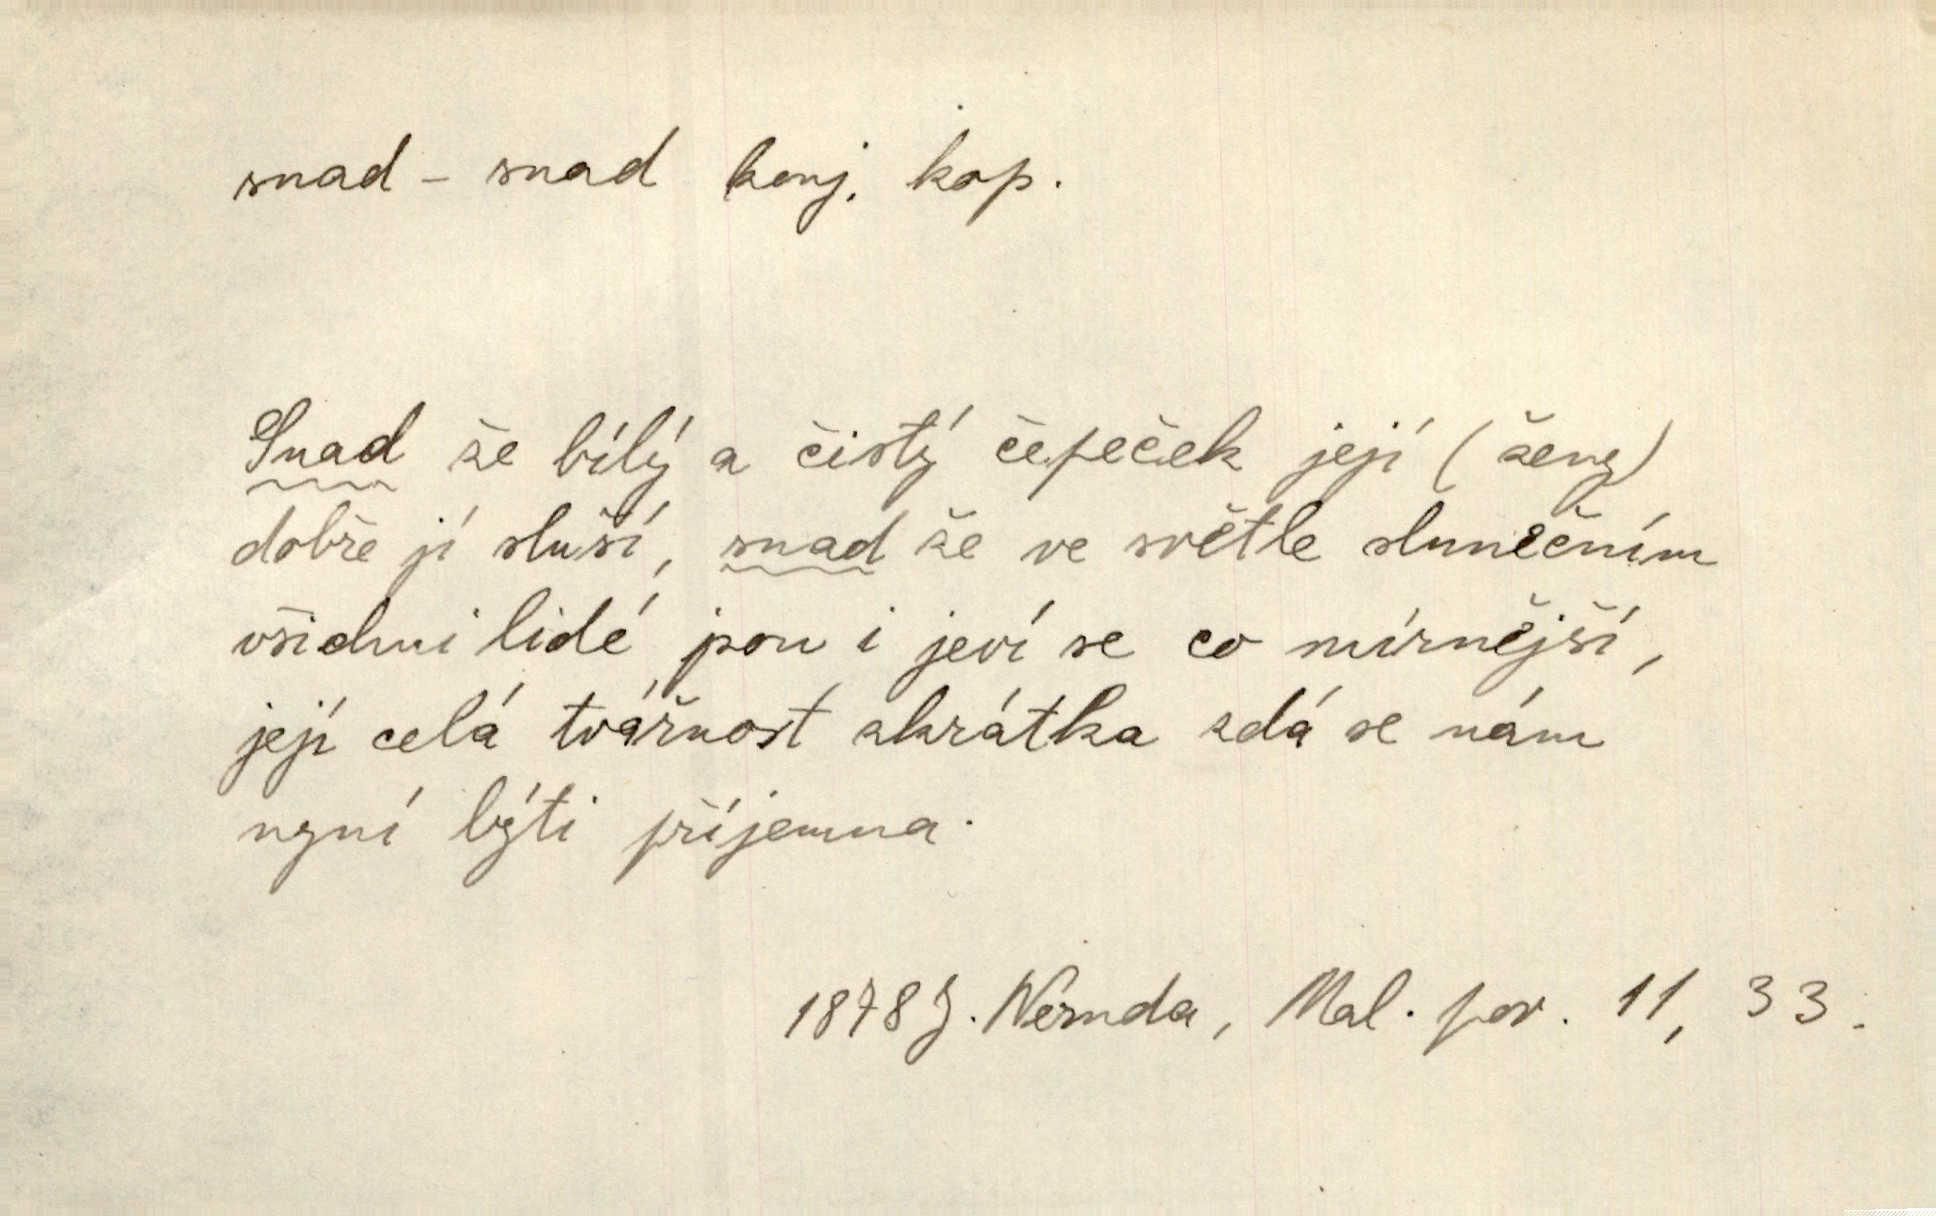 snad – snad konj. kop.
Snad že bílý a čistý čepeček její (ženy)
dobře jí sluší, snad že ve světle slunečním
všichni lidé jsou i jeví se co mírnější,
její celá tvářnost zkrátka zdá se nám
nyní býti příjemna.
1878 J. Neruda, Mal. pov. 11, 33.